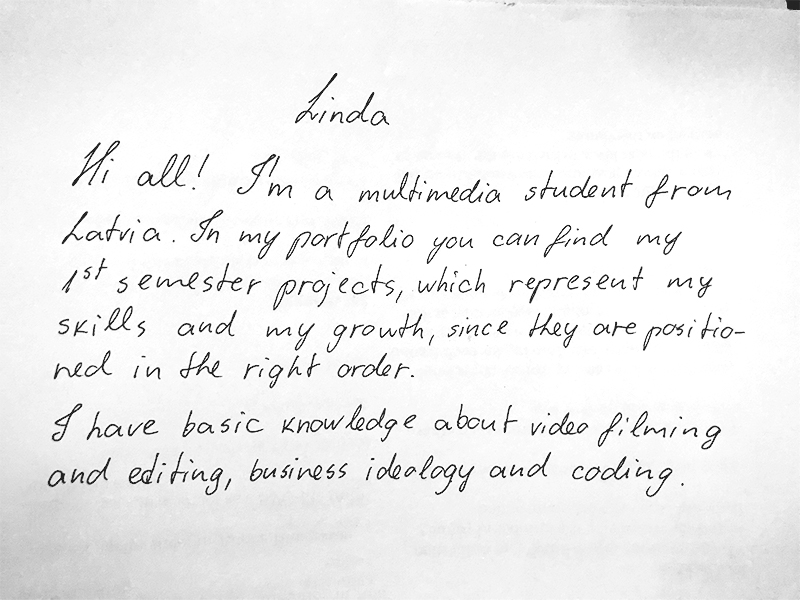 Linda
Hi all! I'm a multimedia student from
Latvia. In my portfolio you can find my
1st semester projects, which represent my
skills and my growth, since they are positio-
ned in the right order.
I have basic knowledge about video filming
and editing, business idealogy and coding.